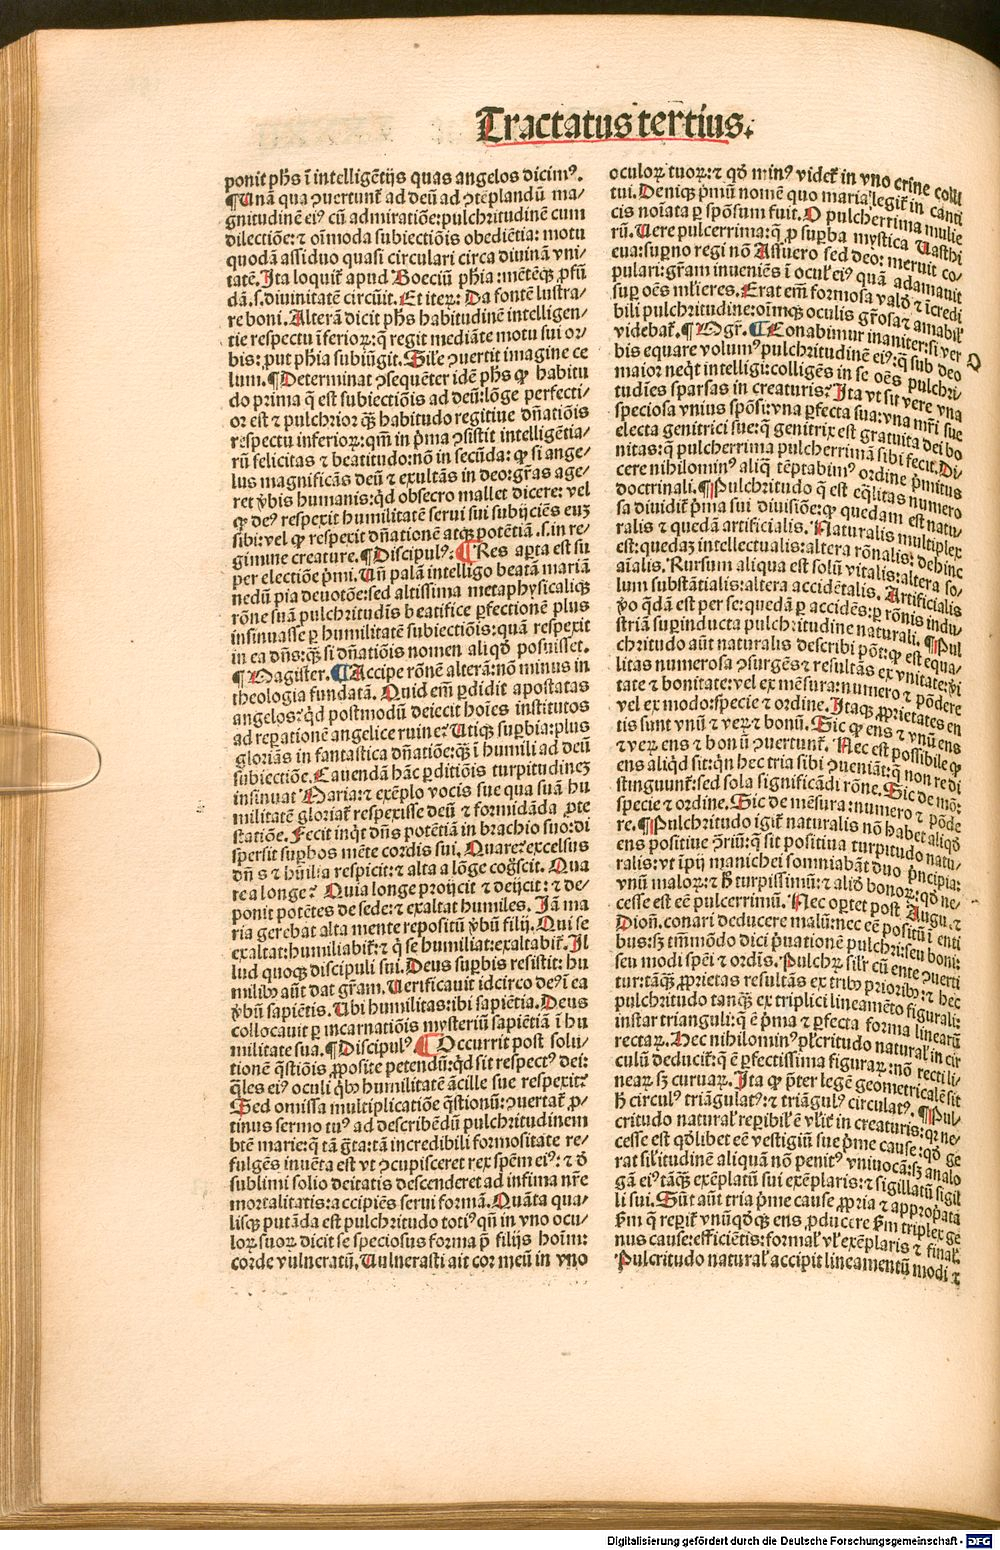 Tractatus tertius.
ponit phs ī intelligētijs quas angelos dicimꝰ.
¶Unā qua ꝯuertunt᷑ ad deū ad ꝯtēplandū ma⸗
gnitudinē eiꝰ cū admiratiōe:pulchritudinē cum
dilectiōe:⁊ oīmoda subiectiōis obediētia: motu
quodā assiduo quasi circulari circa diuinā vni⸗
tatē. Ita loquit᷑ apud Boeciū phia: mētēqꝫ ꝓfū
dā.s.diuinitatē circūit. Et iteꝝ: Da fontē lustra⸗
re boni. Alterā dicit phs habitudinē intelligen⸗
tie respectu īferioꝝ:q̄ regit mediāte motu sui or⸗
bis: put phia subiūgit. Sil'e ꝯuertit imagine ce
lum. ¶Determinat ꝯsequēter idē phs ꝙ habitu
do prima q̄ est subiectiōis ad deū:lōge perfecti⸗
or est ⁊ pulchrior qꝫ̄ habitudo regitiue dn̄atiōis
respectu inferioꝝ:qm̄ in p̄ma ꝯsistit intelligētia⸗
rū felicitas ⁊ beatitudo:nō in secūda: ꝙ si ange⸗
lus magnificās deū ⁊ exultās in deo:gr̄as age⸗
ret v̓bis humanis:qd obsecro mallet dicere: vel
ꝙ deꝰ respexit humilitatē serui sui subijciēs euꝫ
sibi:vel ꝙ respexit dn̄ationē atqꝫ potētiā .s.in re⸗
gimine creature.¶Discipulꝰ: ¶Res aꝑta est su
per electiōe p̄mi. Un̄ palā intelligo beatā mariā
nedū pia deuotōe:sed altissima metaphysicaliqꝫ
rōne suā pulchritudīs beatifice ꝑfectionē plus
insinuasse ꝑ humilitatē subiectiōis:quā respexit
in ea dn̄s:qꝫ̄ si dn̄atiōis nomen aliqd̓ posuisset.
¶Magister. ¶Accipe rōnē alterā: nō minus in
theologia fundatā. Quid em̄ ꝑdidit apostatas
angelos:qd̓ postmodū deiecit hoīes institutos
ad reꝑationē angelice ruine? Utiqꝫ suꝑbia:plus
gloriās in fantastica dn̄atiōe:qꝫ̄ ī humili ad deū
subiectiōe. Cauendā hāc ꝑditiōis turpitudineꝫ
insinuat Maria:⁊ exēplo vocis sue qua suā hu
militatē gloriat᷑ respexisse deū ⁊ formidāda ꝓte
statiōe. Fecit inq̇t dn̄s potētiā in brachio suo:di
spersit suꝑbos mēte cordis sui. Quare? excelsus
dn̄s ⁊ hūilia respicit:⁊ alta a lōge cog̓scit. Qua
re a longe? Quia longe proijcit ⁊ deijcit: ⁊ de⸗
ponit potētes de sede:⁊ exaltat humiles. Iā ma
ria gerebat alta mente repositū v̓bū filij. Qui se
exaltat:humiliabit᷑:⁊ q̇ se humiliat:exaltabit᷑. Il
lud quoqꝫ discipuli sui. Deus suꝑbis resistit: hu
milibꝰ aūt dat gr̄am. Uerificauit idcirco deꝰ ī ea
v̓bū sapiētis. Ubi humilitas:ibi sapiētia. Deus
collocauit ꝑ incarnatiōis mysteriū sapiētiā ī hu
militate sua. ¶Discipulꝰ ¶Occurrit post solu⸗
tionē q̄stiōis ꝓposite petendū:qd̓ sit respectꝰ dei:
q̄les eiꝰ oculi q̇bꝰ humilitatē ācille sue respexit?
Sed omissa multiplicatiōe q̄stionū: ꝯuertat᷑ ꝓ⸗
tinus sermo tuꝰ ad describēdū pulchritudinem
btē marie: q̄ tā g̓ta:tā incredibili formositate re⸗
fulgēs inuēta est vt ꝯcupisceret rex spēm eiꝰ: ⁊ d̓
sublimi solio deitatis descenderet ad infima nr̄e
mortalitatis:accipiēs serui formā. Quāta qua⸗
lisqꝫ putāda est pulchritudo totiꝰ qn̄ in vno ocu⸗
loꝝ suoꝝ dicit se speciosus forma p̄ filijs hoīm:
corde vulneratū. Uulnerasti ait cor meū in vno
oculoꝝ tuoꝝ:⁊ qd̓ minꝰ videt᷑ in vno crine colli
tui. Deniqꝫ p̄mū nomē quo maria legit᷑ in canti
cis noīata ꝑ spōsum fuit. O pulcherrima mulie
rū. Uere pulcerrima:q̄ ꝓ suꝑba mystica Uasthi
eua:suꝑno regi nō Assuero sed deo: meruit co⸗
pulari:gr̄am inueniēs ī ocul' eiꝰ quā adamauit
suꝑ oēs ml'ieres. Erat em̄ formosa vald̓ ⁊ īcredi
bili pulchritudine:oīmqꝫ oculis gr̄osa ⁊ amabil'
videbat᷑. ¶Mgr̄. ¶Conabimur inaniter:si ver
bis equare volumꝰ pulchritudinē eiꝰ:q̄ sub deo
Q
maior neq̇t intelligi:colligēs in se oēs pulchri⸗
tudīes sparsas in creaturis? Ita vt sit vere vna
speciosa vnius spōsi:vna ꝑfecta sua:vna mr̄i sue
electa genitrici sue:q̄ genitrix est gratuita dei bo
nitas:q̄ pulcherrima pulcherrimā sibi fecit. Di⸗
cere nihilominꝰ aliq̄ tēptabimꝰ ordine p̄mitus
doctrinali. ¶Pulchritudo q̄ est eq̄litas numero
sa diuidit᷑ p̄ma sui diuisiōe:ꝙ quedam est natu⸗
ralis ⁊ quedā artificialis. Naturalis multiplex
est:quedaꝫ intellectualis:altera rōnalis: dehinc
aīalis. Rursum aliqua est solū vitalis:altera so⸗
lum substātialis:altera accidētalis. Artificialis
v̓o q̄dā est per se:quedā ꝑ accidēs:ꝑ rōnis indu⸗
striā suꝑinducta pulchritudine naturali. ¶Pul
chritudo aūt naturalis describi pōt:ꝙ est equa⸗
litas numerosa ꝯsurgēs ⁊ resultās ex vnitate:v̓i
tate ⁊ bonitate:vel ex mēsura:numero ⁊ pōdere
vel ex modo:specie ⁊ ordine. Itaqꝫ ꝓprietates en
tis sunt vnū ⁊ veꝝ ⁊ bonū. Sic ꝙ ens ⁊ vnū ens
⁊ veꝝ ens ⁊ bonū ꝯuertunt᷑. Nec est possibile ꝙ
ens aliqd̓ sit:qn̄ hec tria sibi ꝯueniāt:q̄ non re di
stinguunt᷑:sed sola significādi rōne. Sic de mō:
specie ⁊ ordine. Sic de mēsura:numero ⁊ pōde
re. ¶Pulchritudo igit᷑ naturalis nō habet aliqd̓
ens positiue ꝯ̄riū:q̄ sit positiua turpitudo natu⸗
ralis:vt īpij manichei somniabāt duo p̄ncipia:
vnū maloꝝ:⁊ h̄ turpissimū:⁊ aliud̓ bonoꝝ:qd̓ ne⸗
cesse est eē pulcerrimū. Nec oꝑtet post Augu.⁊
Dion̄. conari deducere malū:nec eē positū ī enti
bus:sꝫ tm̄mōdo dici p̄uationē pulchri:seu boni:
seu modi spēi ⁊ ordīs. Pulchꝝ sil'r cū ente ꝯuerti
tur:tāqꝫ̄ ꝓprietas resultās ex tribꝰ prioribꝰ:⁊ hec
pulchritudo tanqꝫ̄ ex triplici lineamēto figurali:
instar trianguli:q̄ ē p̄ma ⁊ ꝑfecta forma linearū
rectaꝝ. Hec nihilominꝰ pl'critudo natural' in cir
culū deducit᷑:q̄ ē ꝑfectissima figuraꝝ:nō rectili⸗
neaꝝ sꝫ curuaꝝ. Ita ꝙ p̄ter legē geometricalē sit
h̄ circulꝰ triāgulatꝰ:⁊ triāgulꝰ circulatꝰ. ¶Pul⸗
critudo natural' reꝑibil' ē vl'it᷑ in creaturis:qꝛ ne⸗
cesse est qd̓libet eē vestigiū sue p̄me cause:qd̓ ge
rat sil'itudinē aliquā nō penitꝰ vniuocā:sꝫ analo
gā eiꝰ tāqꝫ̄ exēplatū sui exēplaris:⁊ sigillatū sigil
li sui. Sūt aūt tria p̄me cause ꝓpria ⁊ approp̄ata
ẜm q̄ reꝑit᷑ vnūqd̓qꝫ ens ꝓducere ẜm triplex ge
nus cause:efficiētis:formal' vl' exēplaris ⁊ final'.
Pulcritudo natural' accipit lineamentū modi ⁊
Digitalisierung gefördert durch die Deutsche Forschungsgemeinschaft - DFG